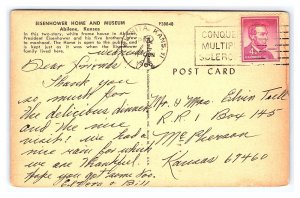 EISENHOWER HOME AND MUSEUM
Abilene, Kansas
P38848
In this two-story, white frame house in Abilene,
President Eisenhower and his five brothers grew
to manhood. The Home is open to the public, and
is kept just as it was when the Eisenhower
family lived here.
Wednesday
Dear friends
Thank you
so much for
the delicious dinner
and the nice
visit! We had a
nice rain for which
we are thankful.
Hope you got some too.
& Bill
POST CARD
CONQUE
MULTIPL
SCLERO
4¢
Mr & Mrs. Elvin
R. R. 1 Box 145
McPherson
Kansas 67460